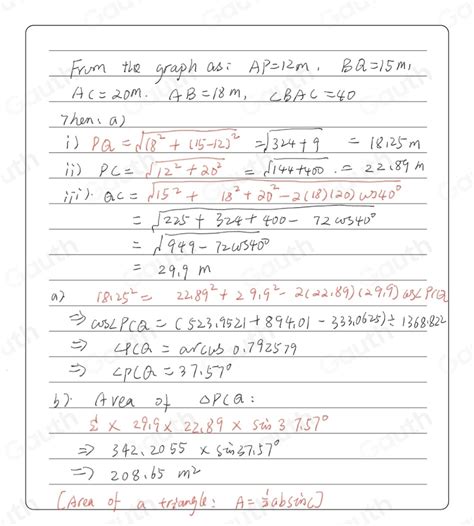 From the graph as: AP=12m, BQ=15m,
AC=20m. AB=18m, ∠BAC=40
Then: a)
i) PQ=√(18²+(15-12)²) =√324+9 = 18.25m
ii) PC=√12²+20² = √144+400 .= 22.89m
iii). QC=√15²+ 18²+20²-2(18)(20)cos40°
= √225+324+400- 72cos40°
= √949-72cos40°
= 29.9 m
a) 18.25²= 22.89²+29.9²-2(22.89)(29.9)cos∠PCQ
⇒ cos∠PCQ=(523.9521+894.01-333.0625)÷1368.822
⇒ ∠PCQ=arccos 0.792579
⇒ ∠PCQ=37.57°
b). Area of △PCQ:
½ × 29.9 × 22.89 × sin37.57°
⇒ 342.2055 × sin37.57°
⇒ 208.65 m²
[Area of a triangle: A=½absinC]